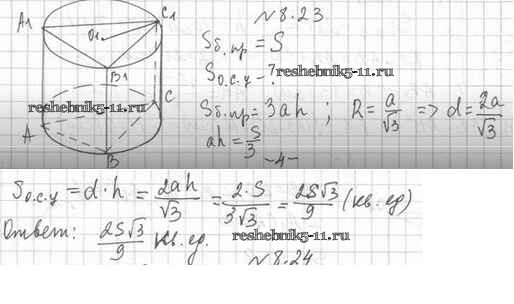 №8.23
A1 C1
O1
B1
Sб.пр = S
Sо.с.ц - ?
reshebnik5-11.ru
Sб.пр = 3ah ; R = a/√3 => d = 2a/√3
ah = S/3
reshebnik5-11.ru
A C
B
-4-
Sо.с.ц = d·h = 2ah/√3 = 2·S/3√3 = 2S√3/9 (кв. ед)
Ответ: 2S√3/9 кв. ед.
reshebnik5-11.ru
№8.24